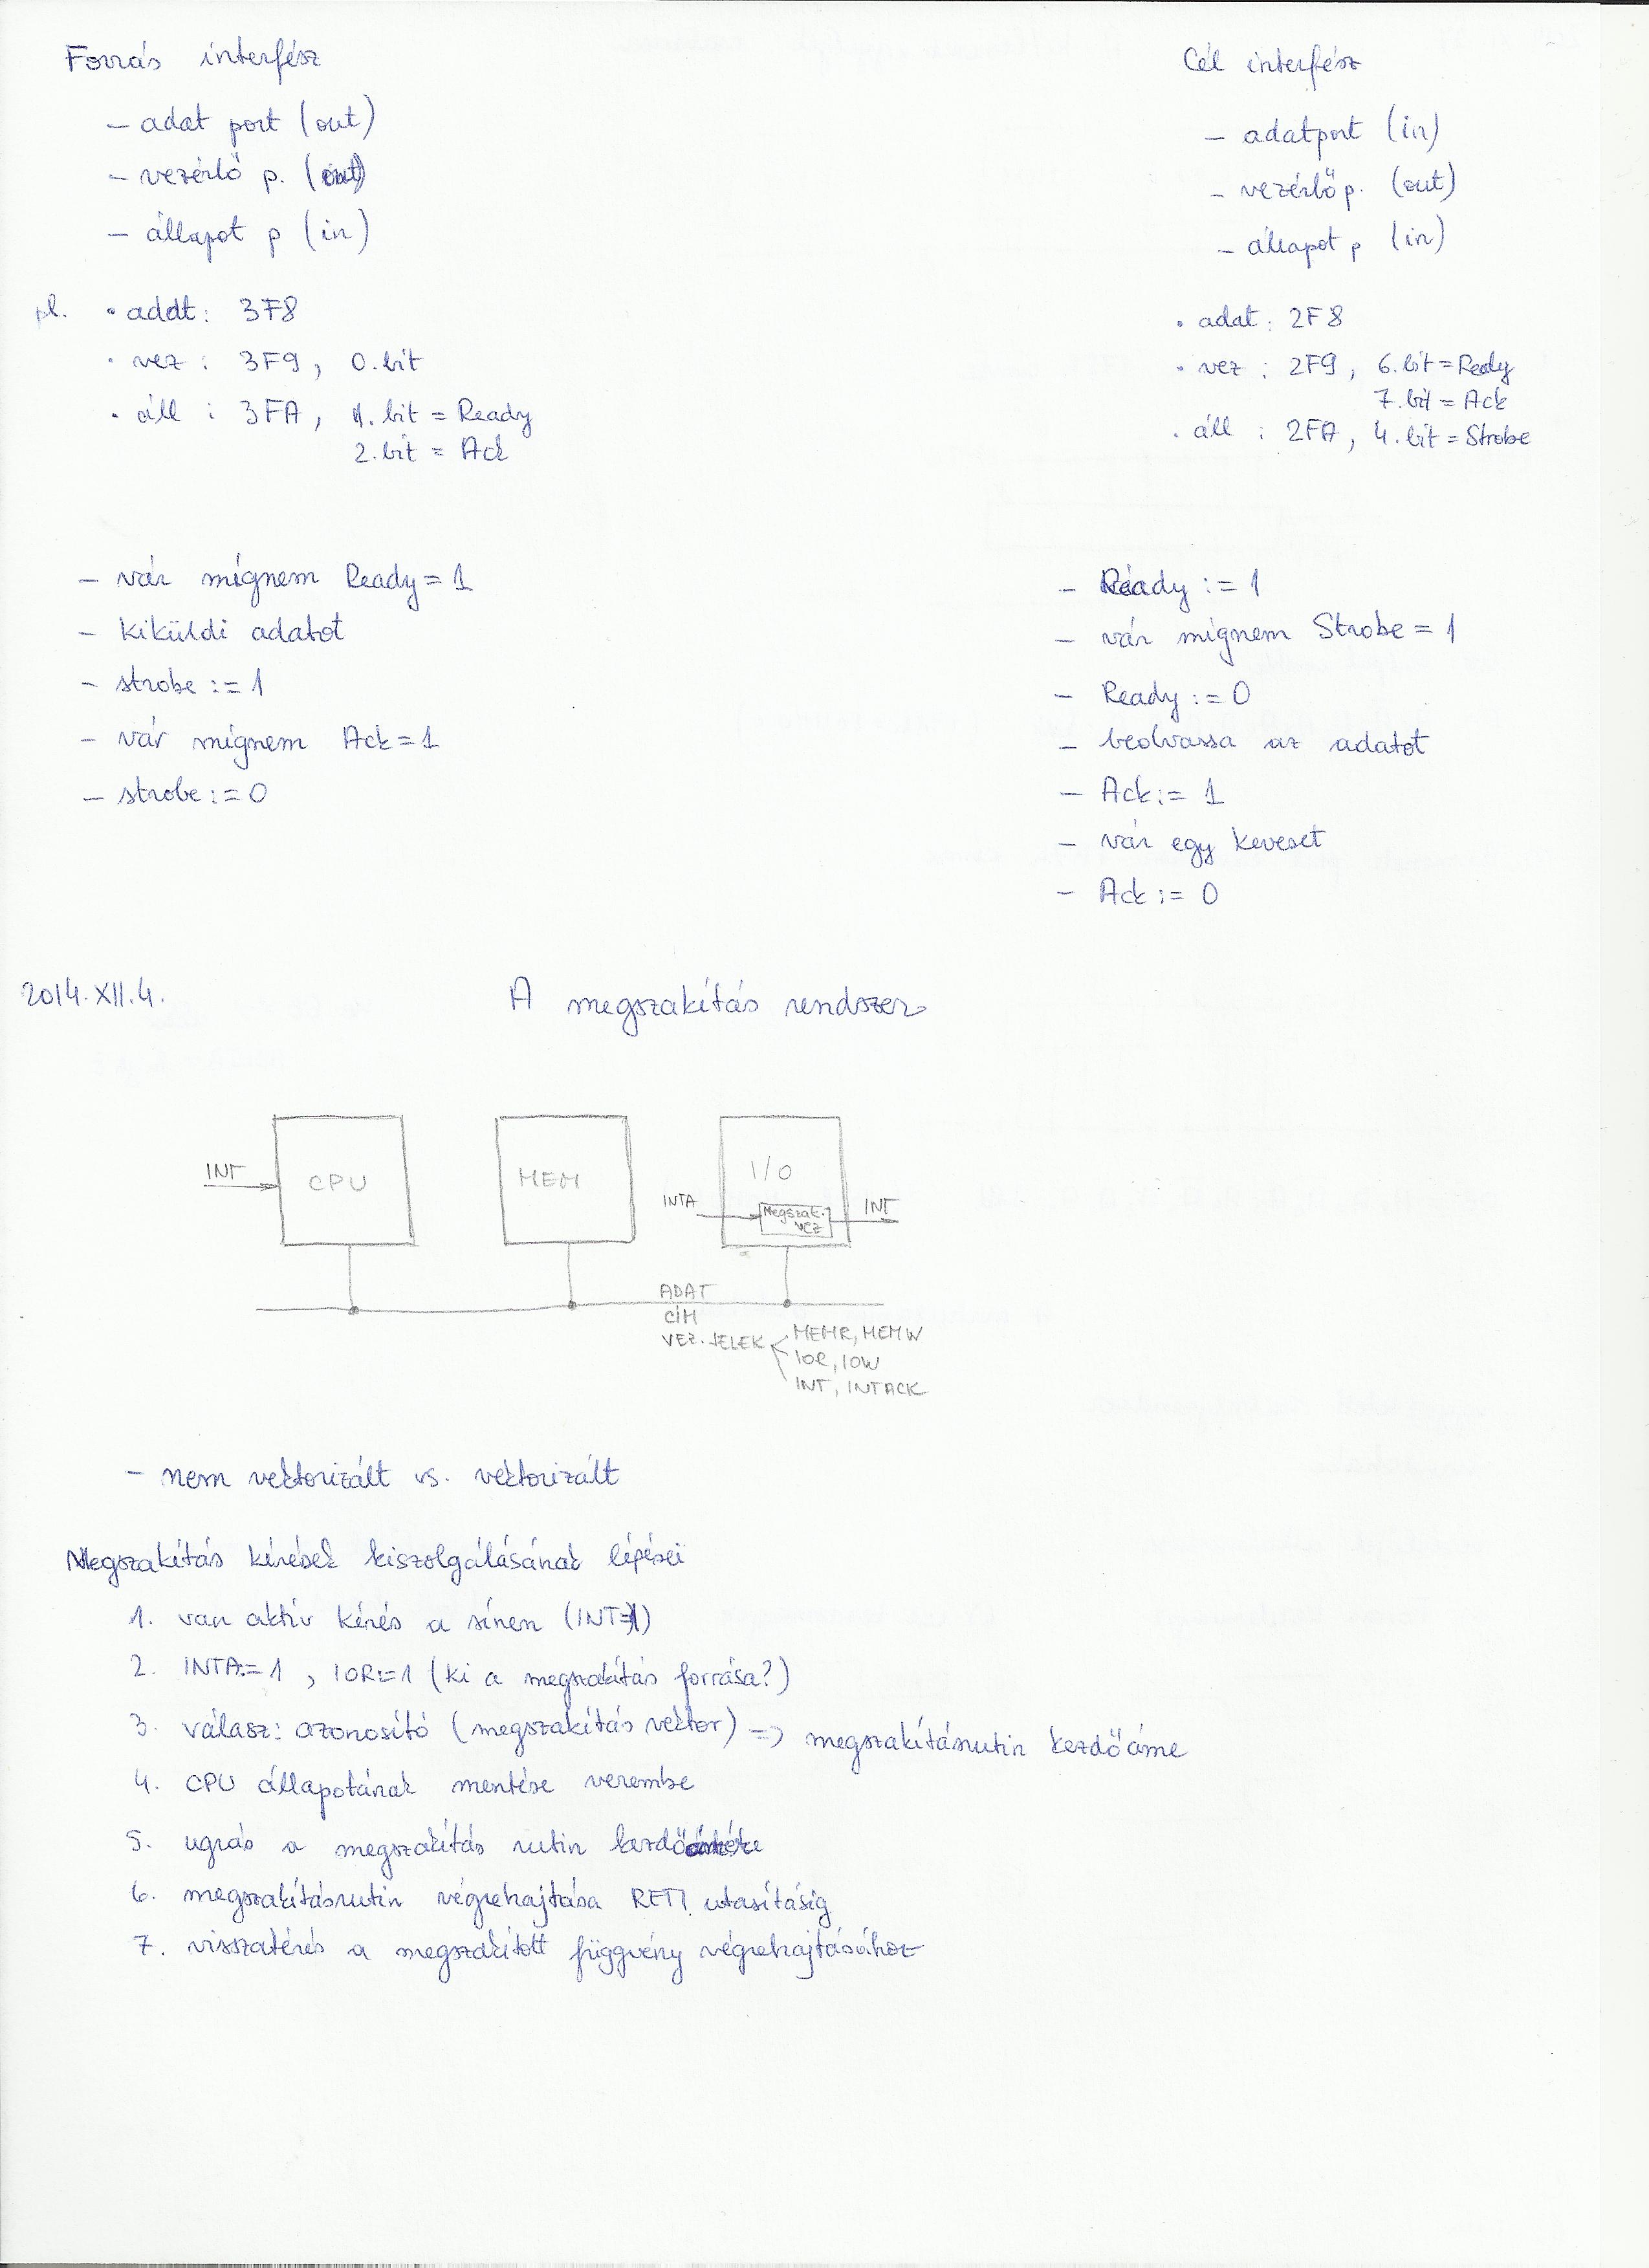 Forrás interfész
- adat port (out)
- vezérlő p. (out)
- állapot p (in)
pl. • adat: 3F8
• vez: 3F9, 0.bit
• áll: 3FA, 1.bit = Ready
2.bit = Ack
- vár mígnem Ready = 1
- kiküldi adatot
- strobe := 1
- vár mígnem Ack = 1
- strobe := 0
Cél interfész
- adatport (in)
- vezérlő p. (out)
- állapot p (in)
• adat: 2F8
• vez: 2F9, 6.bit = Ready
7.bit = Ack
• áll: 2FA, 4.bit = Strobe
- Ready := 1
- vár mígnem Strobe = 1
- Ready := 0
- beolvassa az adatot
- Ack := 1
- vár egy keveset
- Ack := 0
2014.XII.4.
A megszakítás rendszer
INT
CPU
MEM
I/O
INTA
Megszak.
VEZ
INT
ADAT
CÍM
VEZ. JELEK
MEMR, MEMW
IOR, IOW
INT, INTACK
- nem vektorizált vs. vektorizált
Megszakítás kérések kiszolgálásának lépései
1. van aktív kérés a sínen (INT=1)
2. INTA:=1, IOR:=1 (ki a megszakítás forrása?)
3. válasz: azonosító (megszakítás vektor) => megszakításrutin kezdőcíme
4. CPU állapotának mentése verembe
5. ugrás a megszakítás rutin
6. megszakításrutin végrehajtása RETI utasításig
7. visszatérés a megszakított függvény végrehajtásához